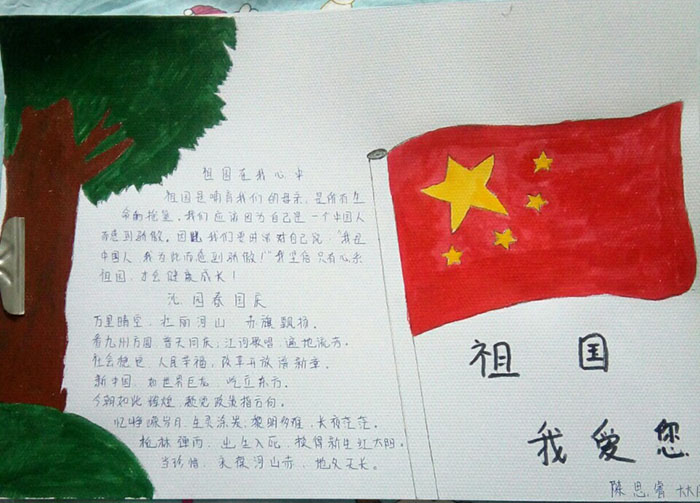 祖国在我心中
祖国是哺育我们的母亲，是所有生
命的摇篮，我们应该因为自己是一个中国人
而感到骄傲。因此我们要时常对自己说“我是
中国人，我为此而感到骄傲！”我坚信只有心系
祖国，才会健康成长！
沁园春国庆
万里晴空，壮丽河山，赤旗飘扬。
看九州方圆，普天同庆；江河歌唱，遍地流芳。
社会稳定，人民幸福，改革开放谱新章。
新中国，如世界巨龙，屹立东方。
今朝如此辉煌，歌党政策指方向。
忆峥嵘岁月，生灵涂炭；黎明多难，长夜茫茫。
枪林弹雨，出生入死，换得新生红太阳。
当珍惜，永保河山赤，地久天长。
祖国
我爱您
陈思睿